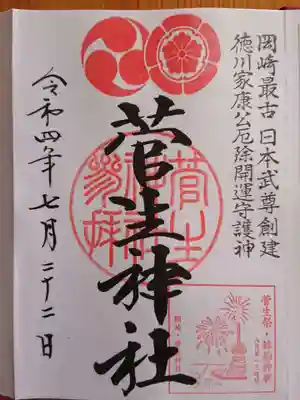 岡崎最古 日本武尊創建
徳川家康公厄除開運守護神
菅生神社
菅生神社参拝
令和四年七月二十二日
菅生祭・鉾船神事